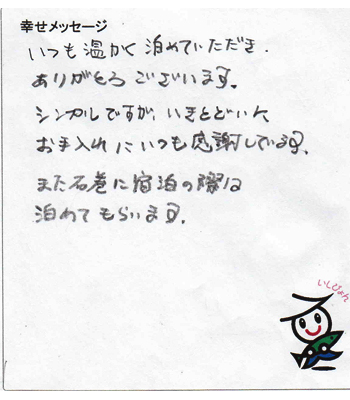 幸せメッセージ
いつも温かく泊めていただき.
ありがとうございます。
シンプルですが、いきとどいた
お手入れにいつも感謝しています。
また石巻に宿泊の際は
泊めてもらいます。
いしぴょん